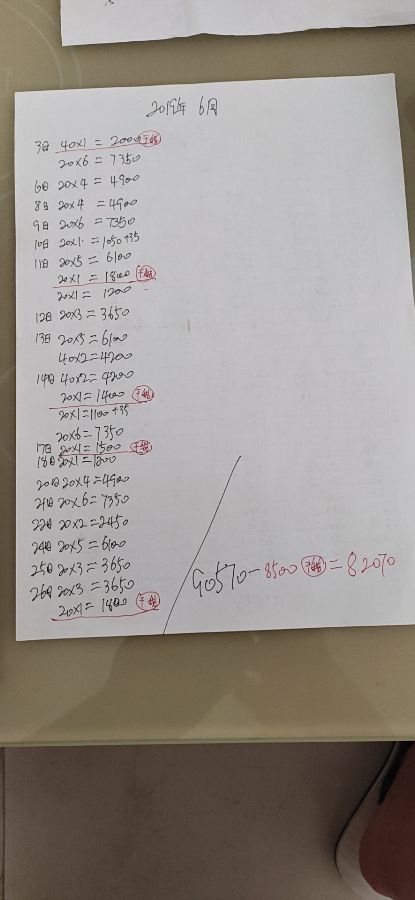 2019年 6月
3日 40x1 = 2000
20x6 = 7350
6日 20x4 = 4900
8日 20x4 = 4900
9日 20x6 = 7350
10日 20x1 = 1050+35
11日 20x5 = 6100
20x1 = 1800
20x1 = 1200
12日 20x3 = 3650
13日 20x5 = 6100
40x2=4200
14日 40x2=4200
20x1=1400
20x1=1100+35
20x6=7350
17日 20x1=1500
18日 20x1=1200
20日 20x4=4900
21日 20x6=7350
22日 20x2=2450
24日 20x5=6100
25日 20x3=3650
26日 20x3=3650
20x1=1800
90570-8500 = 82070